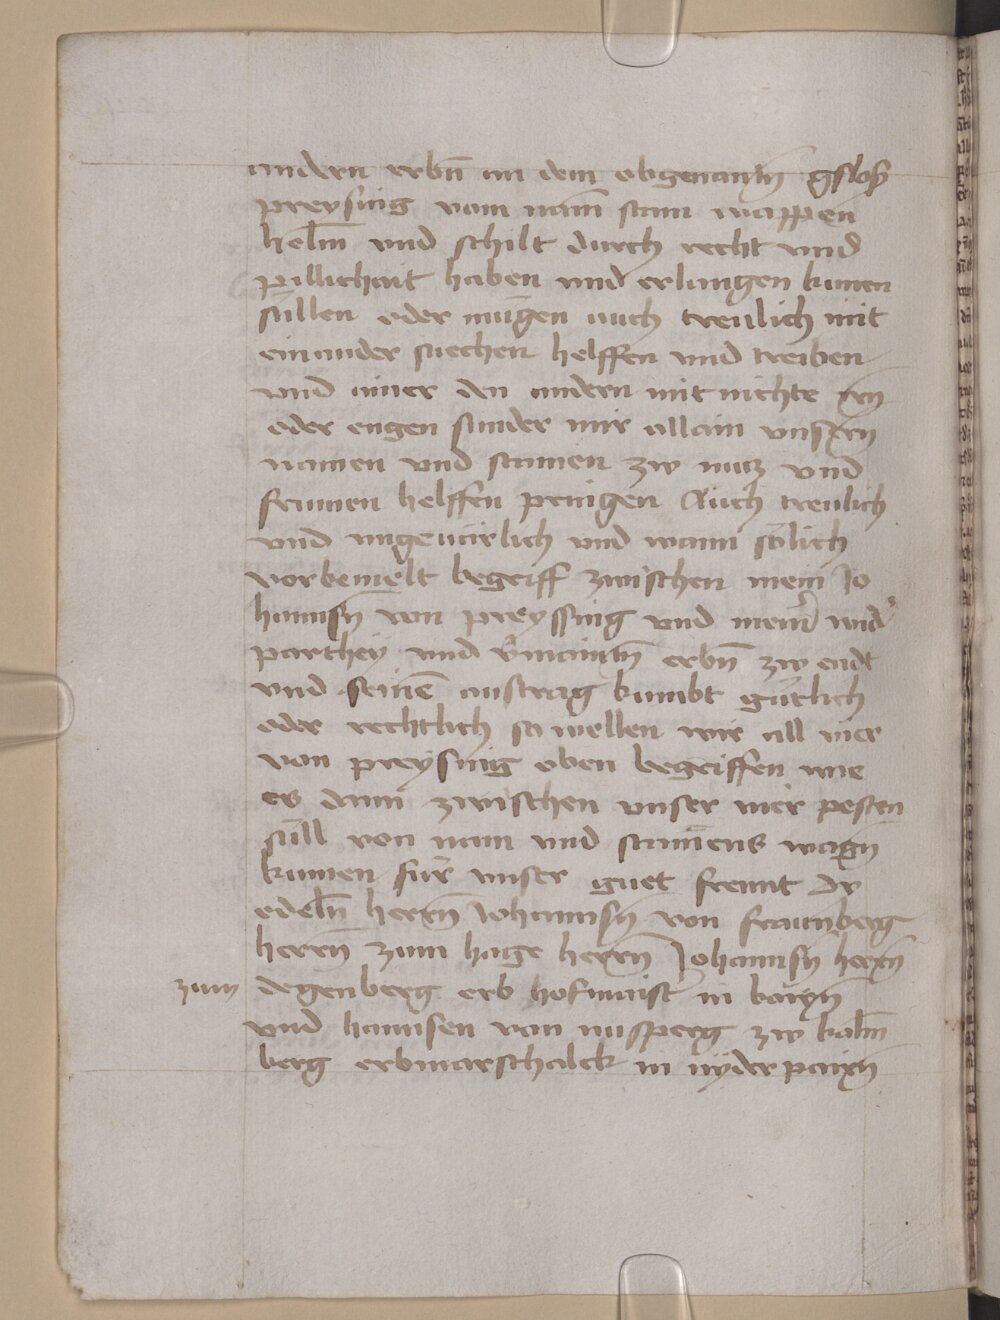 andern erbn̄ an dem obgenantn̄ gsloß
preysing vom nam̄ stam wappen
helm̄ vnd schilt durch recht vnd
pillichait haben vnd erlangen kumen
süllen oder mügen auch treulich mit
einander suechen helffen vnd treiben
vnd ainer den andern mit nichte
oder engen sunder mir allain vnsern̄
namen vnd stamen zw nutz vnd
frumen helffen pringen Auch treulich
vnd ungeuärlich vnd wann sölich
vorbemelt begriff zwischen mein Jo
hannsn̄ von preyssing vnd meinr̄ wider
parthey vnd v̄maintn̄ erbn̄ zw endt
vnd seinē austrag kumbt gütlich
oder rechtlich so wellen wir all vier
von preysing oben begriffen wie
es dann zwischen vnser vier pesten
süll von nam vnd stam̄ens wagn̄
kumen für vnser guet freunt dy
edeln̄ herrn̄ Johannsn̄ von fraunberg
herrn̄ zum hage herrn̄ Johannsn̄ herrn̄
zum degenberg erb hofmaistr̄ in bairn̄
vnd hannsen von nusperg zw kolm̄
berg erbmarschalck in nyder pairn̄